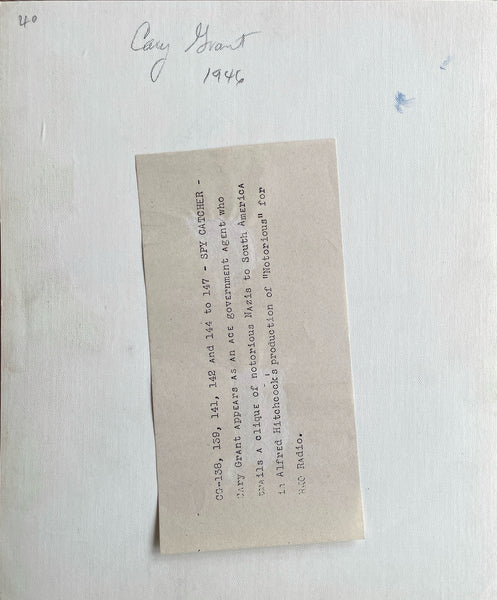 40
Cary Grant
1946
CG-138, 139, 141, 142 and 144 to 147 - SPY CATCHER -
Cary Grant appears as an ace government agent who
trails a clique of notorious Nazis to South America
in Alfred Hitchcock's production of "Notorious" for
RKO Radio.